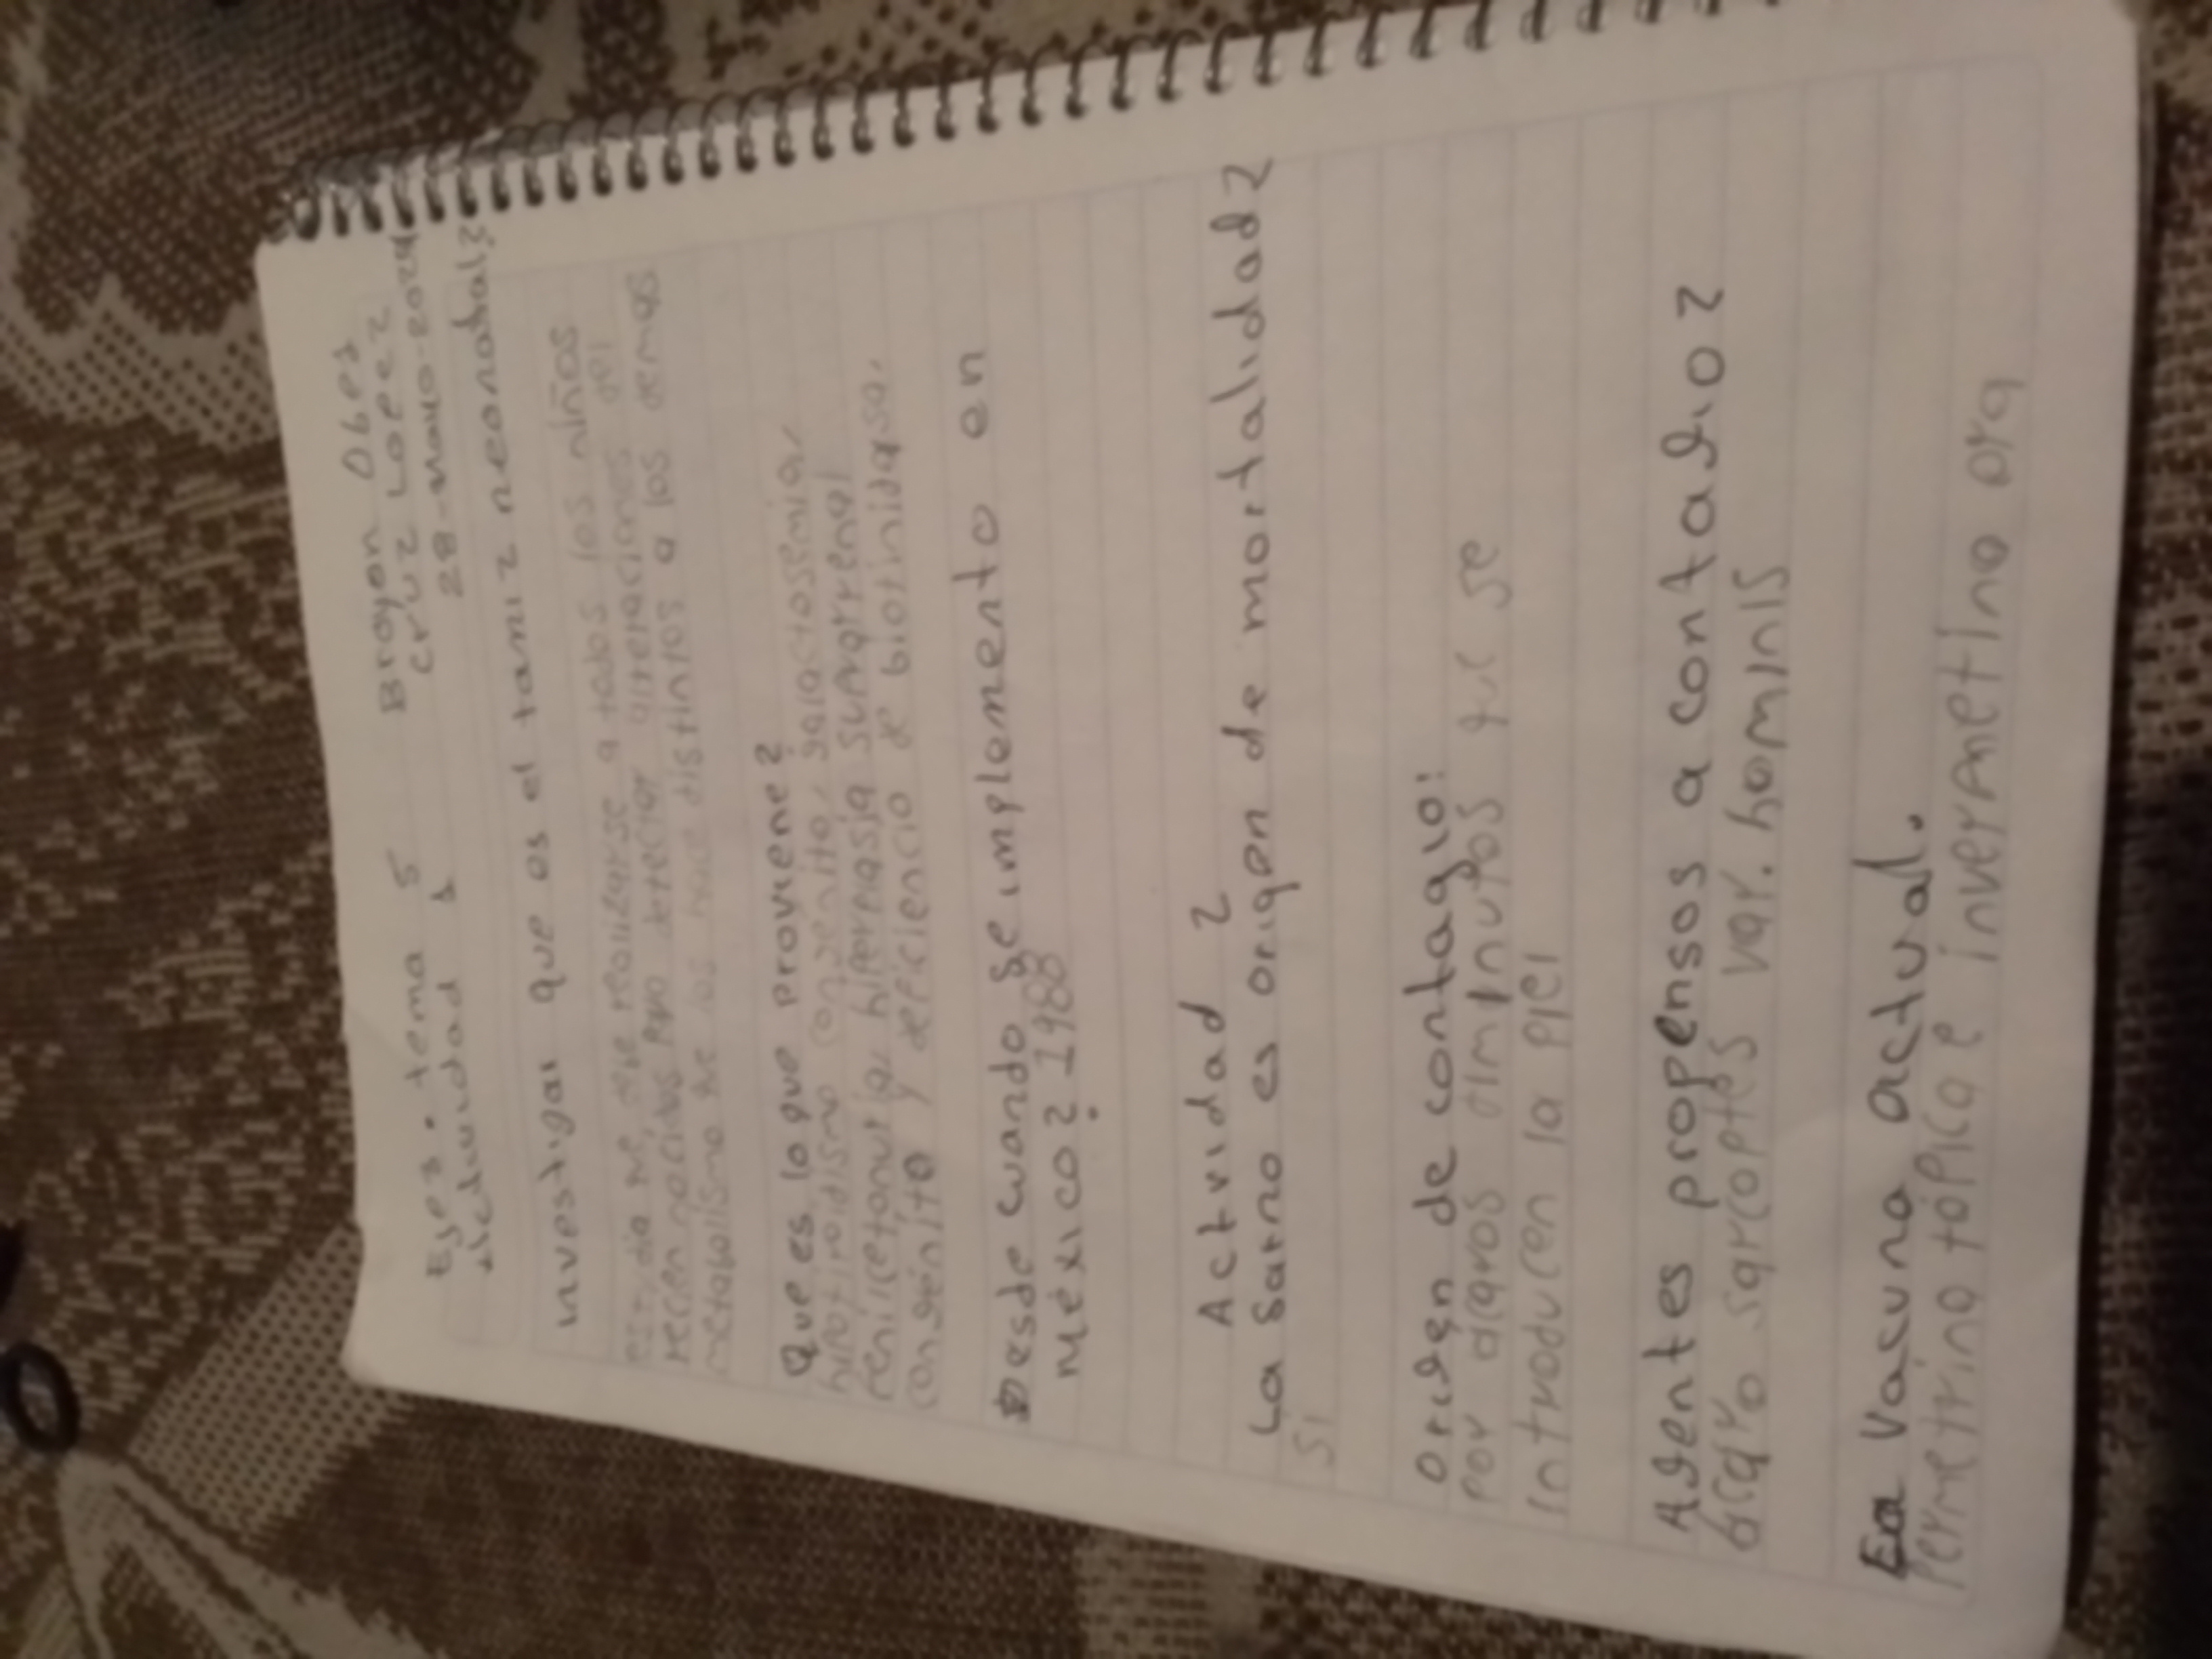 Eje 2. tema 5 Brayan Obed
Actividad 1 Cruz Lopez
28-Mayo-2024
investigar que es el tamiz neonatal?
estudio que debe realizarse a todos los niños
recien nacidos para detectar alteraciones del
metabolismo que los hace distintos a los demas
Que es lo que proviene?
hipotiroidismo congénito, galactosemia,
fenilcetonuria, hiperplasia suprarrenal
congénita y deficiencia de biotinidasa.
Desde cuando se implemento en
México? 1988
Actividad 2
La Sarna es origen de mortalidad?
Si
Origen de contagio:
Por ácaros diminutos que se
introducen la piel
Agentes propensos a contagio?
ácaro sarcoptes var. hominis
La Vacuna actual.
Permetrina tópica e invermetina ora